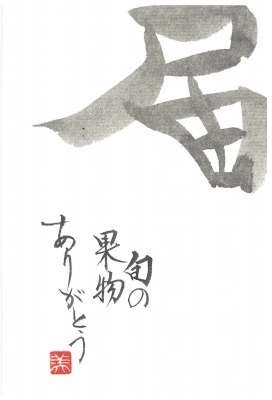 届
旬の
果物
ありがとう
美